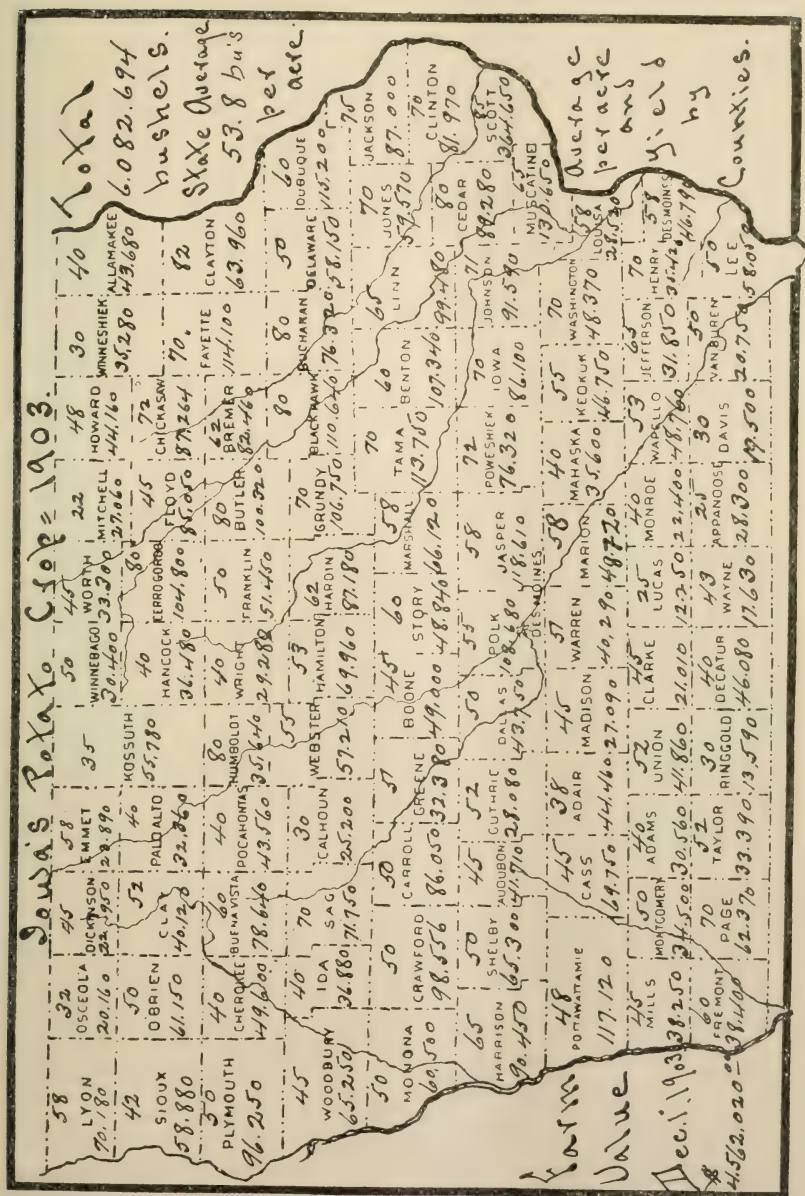 Iowa's Potato Crop = 1903.
Total
6.082.694
bushels.
State Average
53.8 bu's
per
acre.
58
LYON
70.180
32
OSCEOLA
20.160
45
DICKINSON
22.950
58
EMMET
35
KOSSUTH
55,780
50
WINNEBAGO
30.400
45
WORTH
33.300
22
MITCHELL
27.060
48
HOWARD
44.160
30
WINNESHIEK
35,280
40
ALLAMAKEE
43,680
42
SIOUX
58.880
50
OBRIEN
61.150
52
CLAY
40.120
40
PALO ALTO
40
HANCOCK
36.480
80
CERRO GORDO
104,800
45
FLOYD
85.050
72
CHICKASAW
87.264
70.
FAYETTE
114.100
82
CLAYTON
63.960
50
PLYMOUTH
96.250
40
CHEROKEE
49,600
60
BUENA VISTA
78.640
40
POCAHONTAS
43.560
80
HUMBOLDT
35.640
40
WRIGHT
29.288
50
FRANKLIN
51.450
80
BUTLER
100.320
62
BREMER
82.460
45
WOODBURY
65.250
40
IDA
36.880
70
SAG
71.750
30
CALHOUN
25.200
55
WEBSTER
57.210
53
HAMILTON
69.960
62
HARDIN
87.180
70
GRUNDY
106.750
80
BLACK HAWK
110.640
80
BUCHANAN
76.320
50
DELAWARE
58.150
60
DUBUQUE
115,200
50
MONONA
60,500
50
CRAWFORD
98.556
50
CARROLL
86.050
57
GREENE
32.380
45
BOONE
49.000
60
STORY
48.840
58
MARSHALL
66.120
70
TAMA
113.750
60
BENTON
107.340
65
LINN
99.480
70
JONES
59.570
75
JACKSON
87.000
65
HARRISON
90.450
50
SHELBY
65.300
45
AUDUBON
41.710
52
GUTHRIE
28.080
50
DALLAS
43.750
55
POLK
108.680
DES MOINES
58
JASPER
118.610
72
POWESHIEK
76.320
70
IOWA
86.100
71
JOHNSON
91.590
80
CEDAR
89.280
70
CLINTON
81.970
85
SCOTT
364.650
65
MUSCATINE
130.650
48
POTTAWATTAMIE
117.120
45
CASS
69.750
38
ADAIR
44.460
45
MADISON
27.090
57
WARREN
40,290
58
MARION
48720
40
MAHASKA
35.600
55
KEOKUK
46.750
70
WASHINGTON
48.370
58
LOUISA
28.520
45
MILLS
38.250
50
MONTGOMERY
34.500
40
ADAMS
30.560
52
UNION
41.860
45
CLARKE
21.010
25
LUCAS
12.250
40
MONROE
22.400
53
WAPELLO
48.760
65
JEFFERSON
31.850
70
HENRY
35.420
58
DESMOINES
46.790
60
FREMONT
38.400
70
PAGE
62.370
52
TAYLOR
33.390
30
RINGGOLD
13,590
40
DECATUR
46.080
43
WAYNE
17.630
25
APPANOOSE
28.300
30
DAVIS
50
VAN BUREN
20.750
50
LEE
58.050
Farm
Value
Dec. 1. 1903
$
4.562.020=00
average
per acre
and
Yield
by
Counties.